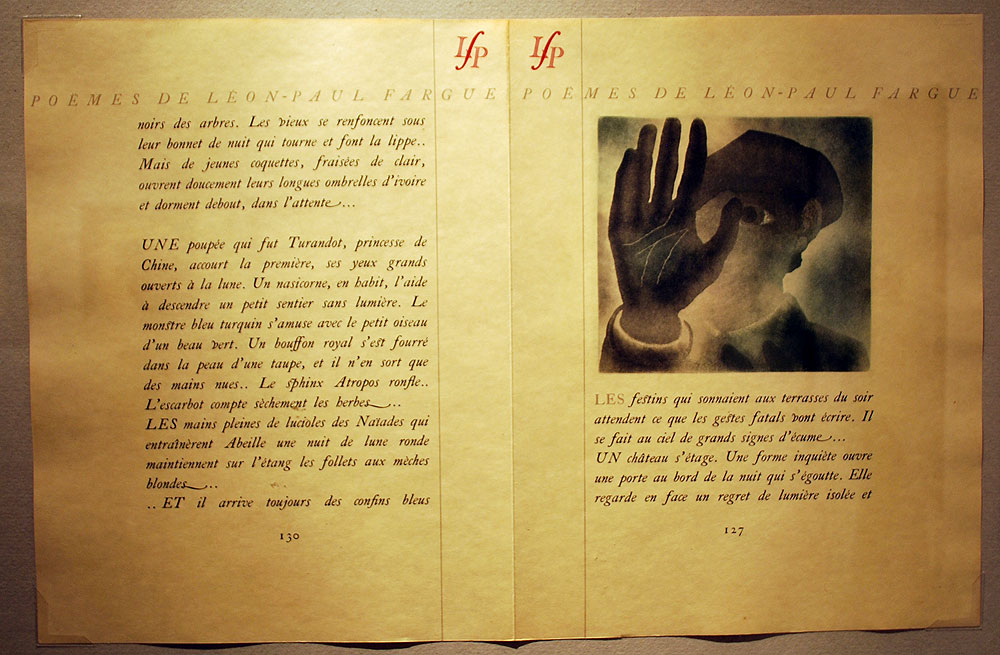 LfP
POËMES DE LÉON-PAUL FARGUE
noirs des arbres. Les vieux se renfoncent sous
leur bonnet de nuit qui tourne et font la lippe..
Mais de jeunes coquettes, fraisées de clair,
ouvrent doucement leurs longues ombrelles d'ivoire
et dorment debout, dans l'attente...
UNE poupée qui fut Turandot, princesse de
Chine, accourt la première, ses yeux grands
ouverts à la lune. Un nasicorne, en habit, l'aide
à descendre un petit sentier sans lumière. Le
monstre bleu turquin s'amuse avec le petit oiseau
d'un beau vert. Un bouffon royal s'est fourré
dans la peau d'une taupe, et il n'en sort que
des mains nues.. Le sphinx Atropos ronfle..
L'escarbot compte sèchement les herbes...
LES mains pleines de lucioles des Naïades qui
entraînèrent Abeille une nuit de lune ronde
maintiennent sur l'étang les follets aux mèches
blondes...
.. ET il arrive toujours des confins bleus
130
LfP
POËMES DE LÉON-PAUL FARGUE
LES festins qui sonnaient aux terrasses du soir
attendent ce que les gestes fatals vont écrire. Il
se fait au ciel de grands signes d'écume...
UN château s'étage. Une forme inquiète ouvre
une porte au bord de la nuit qui s'égoutte. Elle
regarde en face un regret de lumière isolée et
127